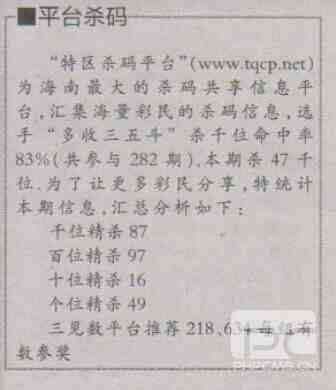 ■平台杀码
“特区杀码平台”(www.tqcp.net)
为海南最大的杀码共享信息平
台,汇集海量彩民的杀码信息,选
手“多收三五斗”杀千位命中率
83%(共参与 282 期),本期杀 47 千
位.为了让更多彩民分享,特统计
本期信息,汇总分析如下:
千位精杀 87
百位精杀 97
十位精杀 16
个位精杀 49
三见数平台推荐 218,634 每组有
数参奖